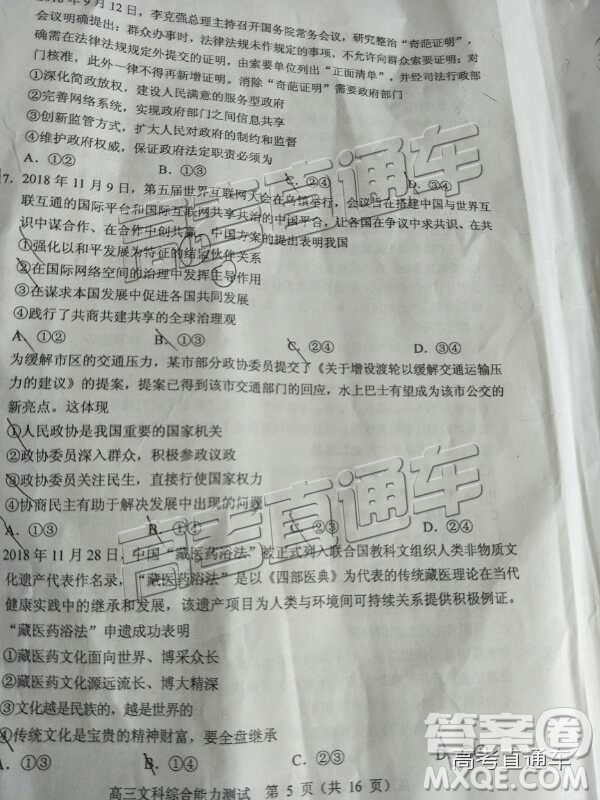 2018年9月12日，李克强总理主持召开国务院常务会议，研究整治“奇葩证明”，
会议明确提出：群众办事时，法律法规未作规定的事项，不允许向群众索要证明；对
确需在法律法规规定外提交的证明，由索要单位列出“正面清单”，并经司法行政部
门核准，此外一律不得再新增证明。消除“奇葩证明”需要政府部门
①深化简政放权，建设人民满意的服务型政府
②完善网络系统，实现政府部门之间信息共享
③创新监管方式，扩大人民对政府的制约和监督
④维护政府权威，保证政府法定职责必须为
A．①② B．①③ C．②④ D．③④
7．2018年11月9日，第五届世界互联网大会在乌镇举行，会议旨在搭建中国与世界互
联互通的国际平台和国际互联网共享共治的中国平台，让各国在争议中求共识、在共
识中谋合作、在合作中创共赢。中国方案的提出表明我国
①强化以和平发展为特征的结盟伙伴关系
②在国际网络空间的治理中发挥主导作用
③在谋求本国发展中促进各国共同发展
④践行了共商共建共享的全球治理观
A．①② B．①③ C．②④ D．③④
为缓解市区的交通压力，某市部分政协委员提交了《关于增设渡轮以缓解交通运输压
力的建议》的提案，提案已得到该市交通部门的回应，水上巴士有望成为该市公交的
新亮点。这体现
①人民政协是我国重要的国家机关
②政协委员深入群众，积极参政议政
③政协委员关注民生，直接行使国家权力
④协商民主有助于解决发展中出现的问题
A．①③ B．①④ C．②③ D．②④
2018年11月28日，中国“藏医药浴法”被正式列入联合国教科文组织人类非物质文
化遗产代表作名录，“藏医药浴法”是以《四部医典》为代表的传统藏医理论在当代
健康实践中的继承和发展，该遗产项目为人类与环境间可持续关系提供积极例证。
“藏医药浴法”申遗成功表明
①藏医药文化面向世界、博采众长
②藏医药文化源远流长、博大精深
③文化越是民族的，越是世界的
④传统文化是宝贵的精神财富，要全盘继承
A．①③ B．①④ C．②③ D
高三文科综合能力测试 第5页（共16页）
高考直通车
高考直通车
高考直通车
答案圈
高考直通车
MXQE.COM